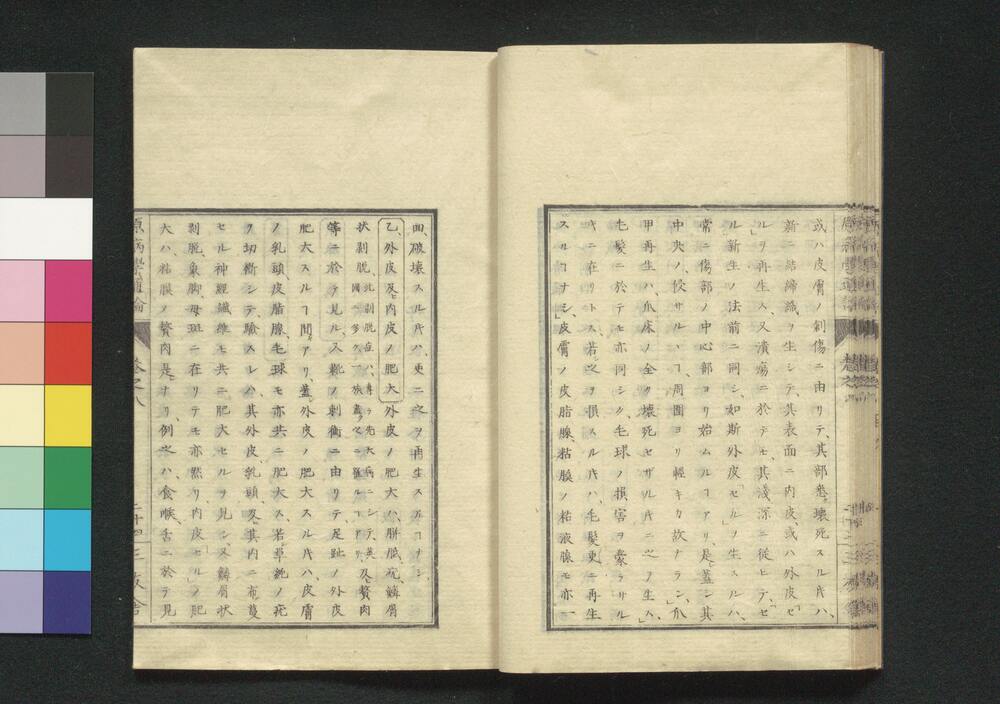 或ハ皮膚ノ創傷ニ由リテ、其部悉ク壊死スル片ハ、
新ニ結締織ヲ生シテ、其表面ニ内皮、或ハ外皮「セ
ル」ヲ再生ス、又潰瘍ニ於テモ、其浅深ニ従ヒテ、「セ
ル」新生ノ法前ニ同シ、如斯外皮「セル」ヲ生スルハ、
常ニ傷部ノ中心部ヨリ始ムルヿアリ、是蓋シ其
中央ノ侵サルヽヿ、周囲ヨリ軽キカ故ナラン、爪
甲再生ハ、爪床ノ全ク壊死セザル片ニ之ヲ生ス、
毛髪ニ於テモ亦同シク、毛球ノ損害ヲ蒙ラサル
片ニ在リトス、若之ヲ損スル片ハ、毛髪更ニ再生
スルヿナシ、皮膚ノ皮脂腺、粘膜ノ粘液腺モ亦一
回破壊スル片ハ、更ニ之ヲ再生スルヿナシ、
乙、外皮及内皮ノ肥大 外皮ノ肥大ハ、胼胝、疣、鱗屑
状剥脱、及贅肉
等ニ於テ見ル、又靴ノ刺衝ニ由リテ、足趾ノ外皮
肥大スルヿ間アリ、蓋外皮ノ肥大スル片ハ、皮膚
ノ乳頭皮脂腺、毛球モ亦共ニ肥大ス、若疣ノ死
ヲ切断シテ、験スレハ、其外皮、乳頭、及其内ニ布蔓
セル神経繊維モ共ニ肥大セルヲ見ン、又鱗屑状
剥脱、象脚、母斑ニ在リテモ亦然リ、内皮「セル」ノ肥
大ハ、粘膜ノ贅肉是ナリ、例之ハ、食喉、舌ニ於テ見
原病学通論 巻之八 二十四 三友舎